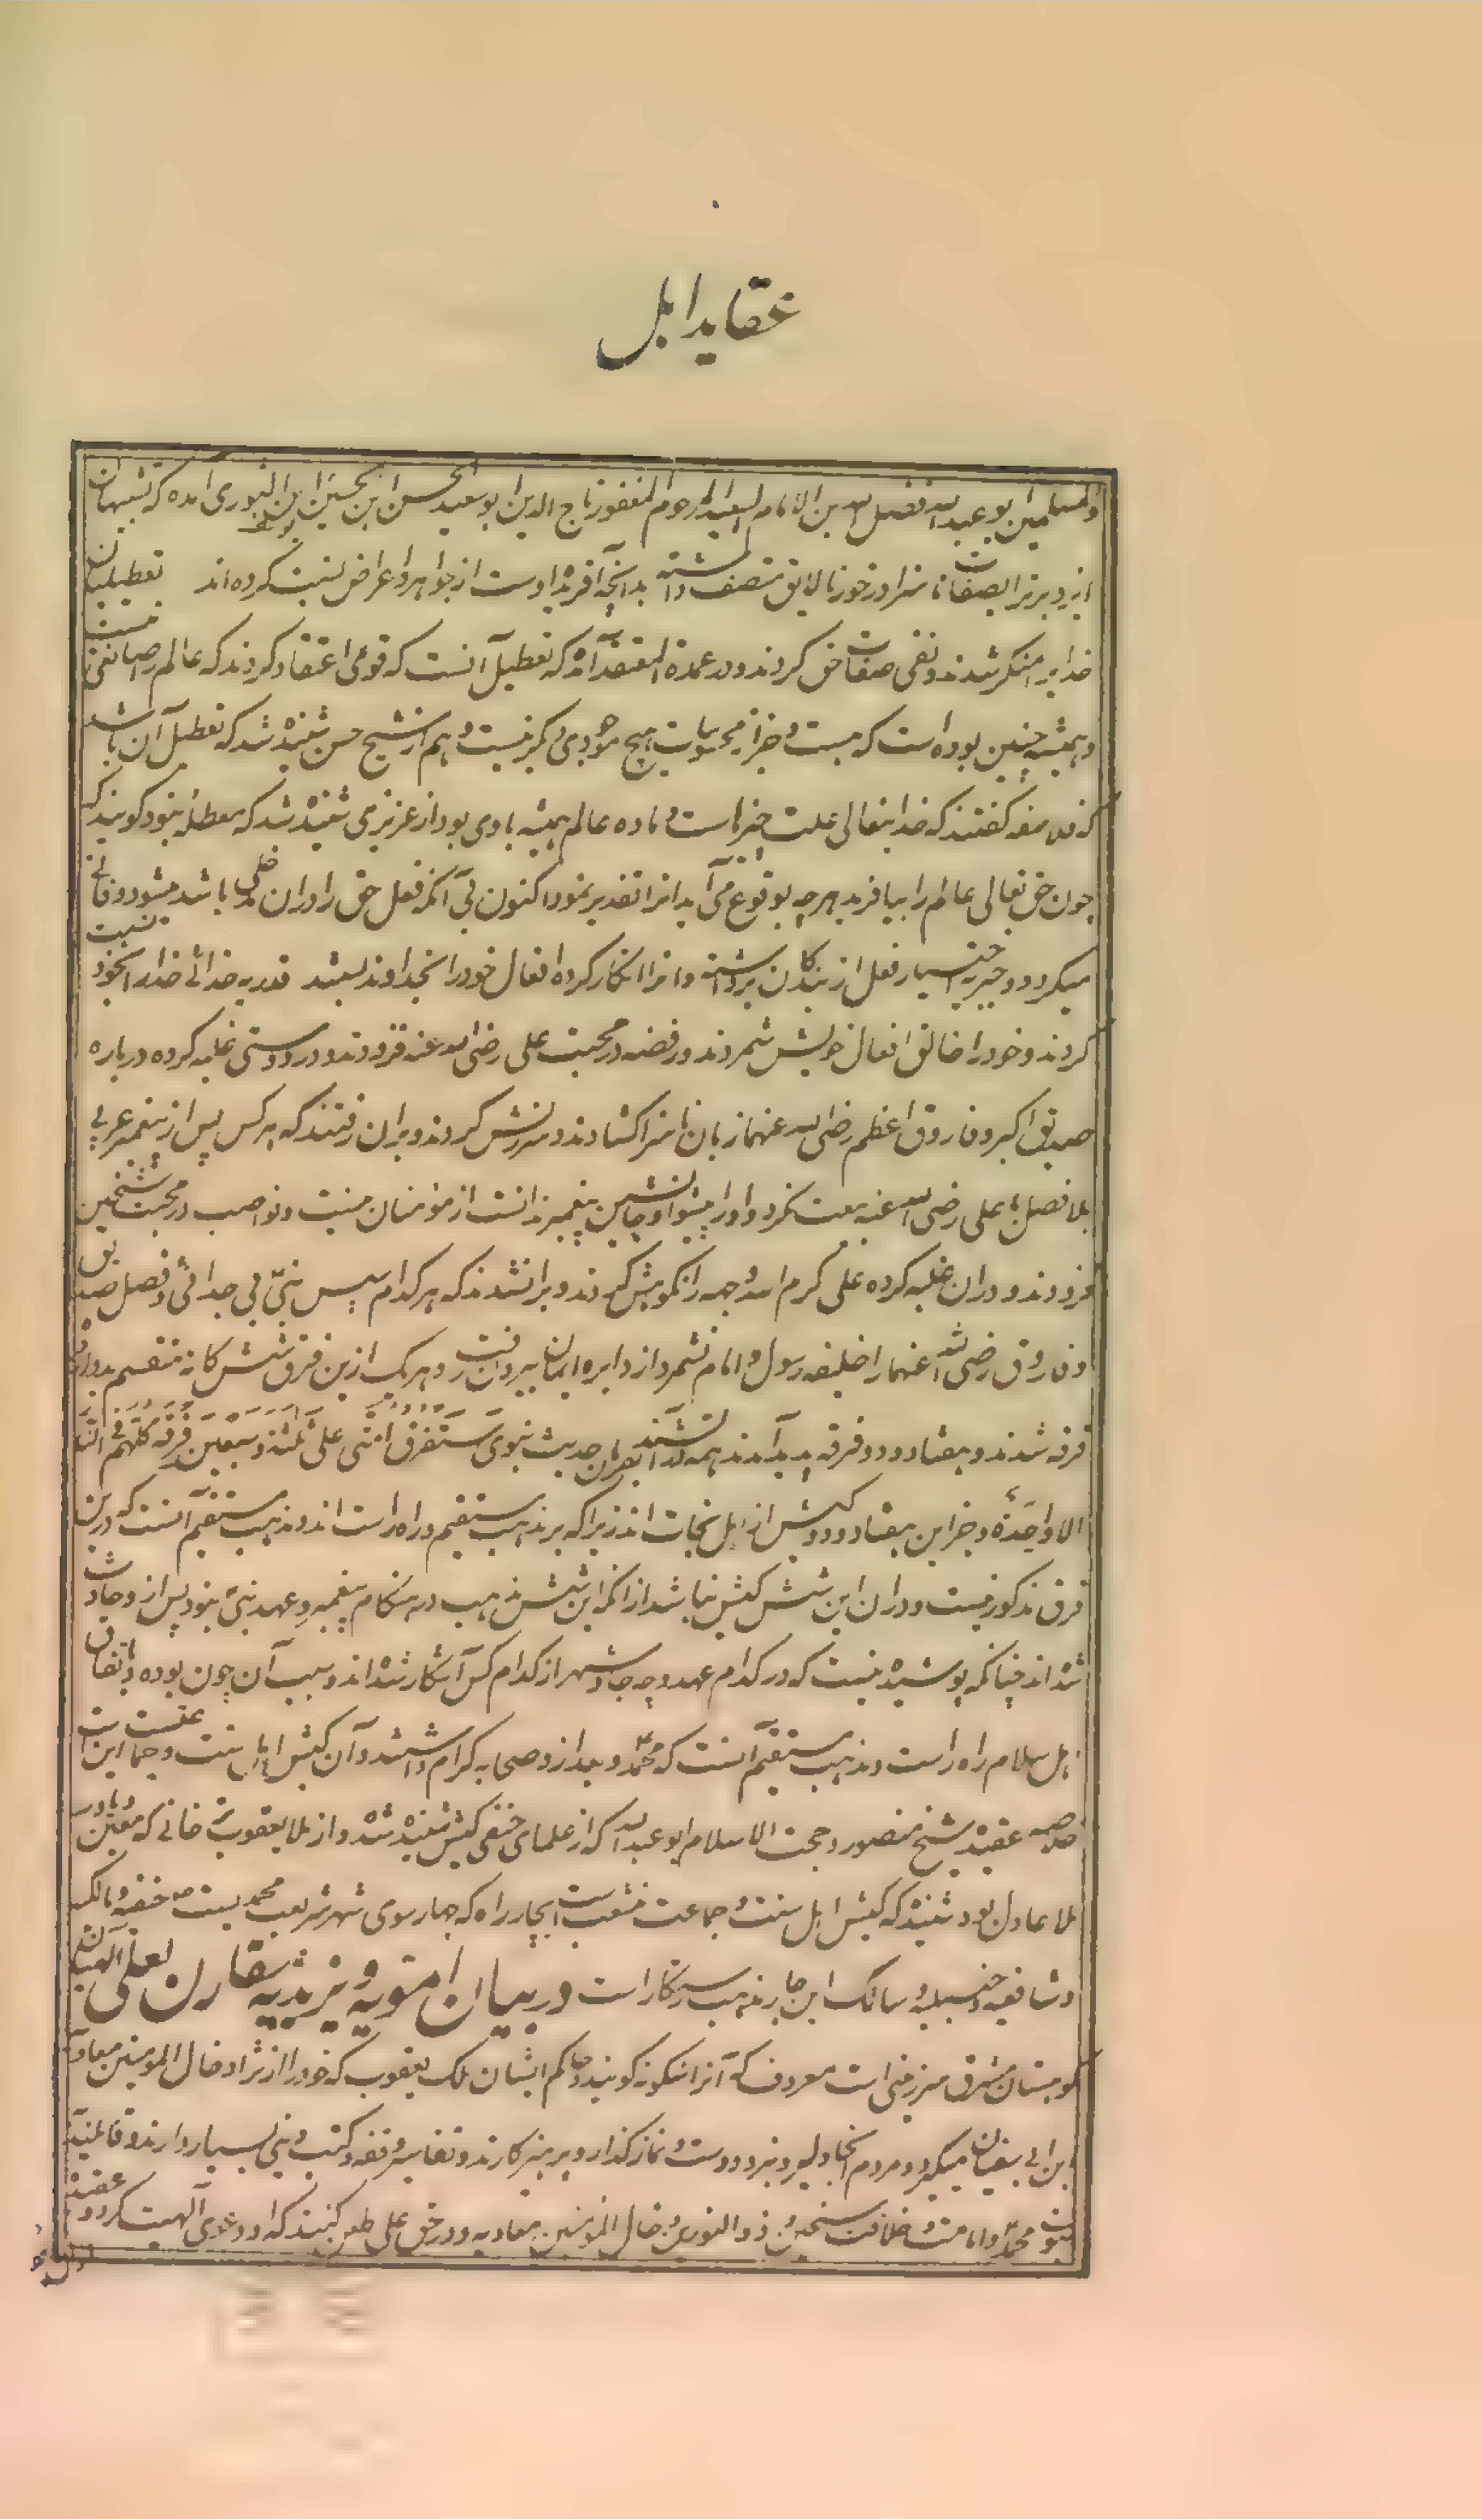 عقاید اهل
والمسلمین ابو عبدالله فضل الله بن الامام السعید المرحوم المغفور تاج الدین ابو سعید الحسن ابن الحسین ابن النوری آمده که تشبیهیان
ایزد برتر را بصفات ناسزا و درخور نالایق متصف دانسته بدانچه آفریده اوست از جواهر و اعراض نسبت کرده‌اند تعطیلیان
خدایرا منکر شدند و نفی صفات حق کردند و در عمدة المعتقد آمده که تعطیل آنست که قومی اعتقاد کردند که عالم را صانعی نیست
و همیشه چنین بوده است که هست و جز از محسوسات هیچ موجودی دیگر نیست و هم از شیخ حسن شنیده شد که تعطیل آن باشد
که فلاسفه گفتند که خدایتعالی علت چیزهاست و ماده عالم همیشه باوی بود از عزیزی شنیده شد که معطله بنود گویند که
چون حق تعالی عالم را بیافرید هرچه بوقوع می‌آید انرا تقدیر نمود اکنون بی آنکه فعل حق را در ان دخلی باشد میشود و فانی
میکردد و جبریه اختیار فعل از بندگان برداشته و انرا انکار کرده افعال خود را بخداوند بستند قدریه خدائی خدا را بخود نسبت
کردند و خود را خالق افعال خویش شمردند و رفضه در محبت علی رضی الله عنه فزودند و در دوستی غلبه کرده درباره
صدیق اکبر و فاروق اعظم رضی الله عنهما زبان ناسزا کشادند و سرزنش کردند و بران رفتند که هر کس پس از پیغمبر عربی
بلا فصل با علی رضی الله عنه بیعت نکرد و او را پیشوا و جانشین پیغمبر ندانست از مؤمنان نیست و نواصب در محبت شیخین
فزودند و دران غلبه کرده علی کرم الله وجهه را نکوهش کردند و برانشدند که هر کدام پس نبی بی جدائی و فصل صدیق
و فاروق رضی الله عنهما را خلیفه رسول و امام نشمرد از دایره ایمان بیرون رفت و هر یک ازین فرق شش کانه منقسم بدوازده
فرقه شدند و هفتاد و دو فرقه پدید آمدند همه در آتشند بفرمان حدیث نبوی سَتَفرق امّتی علی ثلثة و سَبعین فِرقة کلّهم فی النّار
الا واحدة و جز این هفتاد و دو کیش از اهل نجات‌اند زیرا که بر مذهب مستقیم و راه راست اند و مذهب مستقیم آنست که درین
فرق مذکور نیست و دران این شش کیش نباشد از انکه این شش مذهب در هنکام پیغمبر و عهد نبی نبود پس از و حادث
شده اند چنانکه پوشیده نیست که در کدام عهد و چه جا و شهر از کدام کس آشکار شده اند و سبب آن چون بوده و باتفاق
اهل اسلام راه راست و مذهب مستقیم آنست که محمد و بعد از و صحابه کرام داشتند و آن کیش اهل سنت و جماعتست این است
خلاصه عقیده شیخ منصور و حجت الاسلام ابو عبدالله که از علمای حنفی کیش شنیده شد و از ملا یعقوب خانی که
ملا عادل بود شنیده که کیش اهل سنت و جماعت منشعب است بچار راه که چهار سوی شهر شریعت محمدیست حنفیه و مالکیه
و شافعیه و حنبلیه و سالک این چار مذهب رستکار است در بیان امّویه و یزیدیه
کوهستان مشرق سرزمینی است معروف که آنرا کونه گویند و حاکم ایشان ملک یعقوب که خود را از نژاد خال المومنین معاویه
بن ابی سفیان میگیرد و مردم آنجا دلیر و نبرد دوست و نماز گذار و پرهیزکارند و تفاسیر و فقه و کتب دینی بسیار دارند و قائلند
نبوت محمد و امامت و خلافت شیخین و ذو النورین و خال المؤمنین معاویه و در حق علی طعن کنند که او دعوی الهیت کرد و عقیده